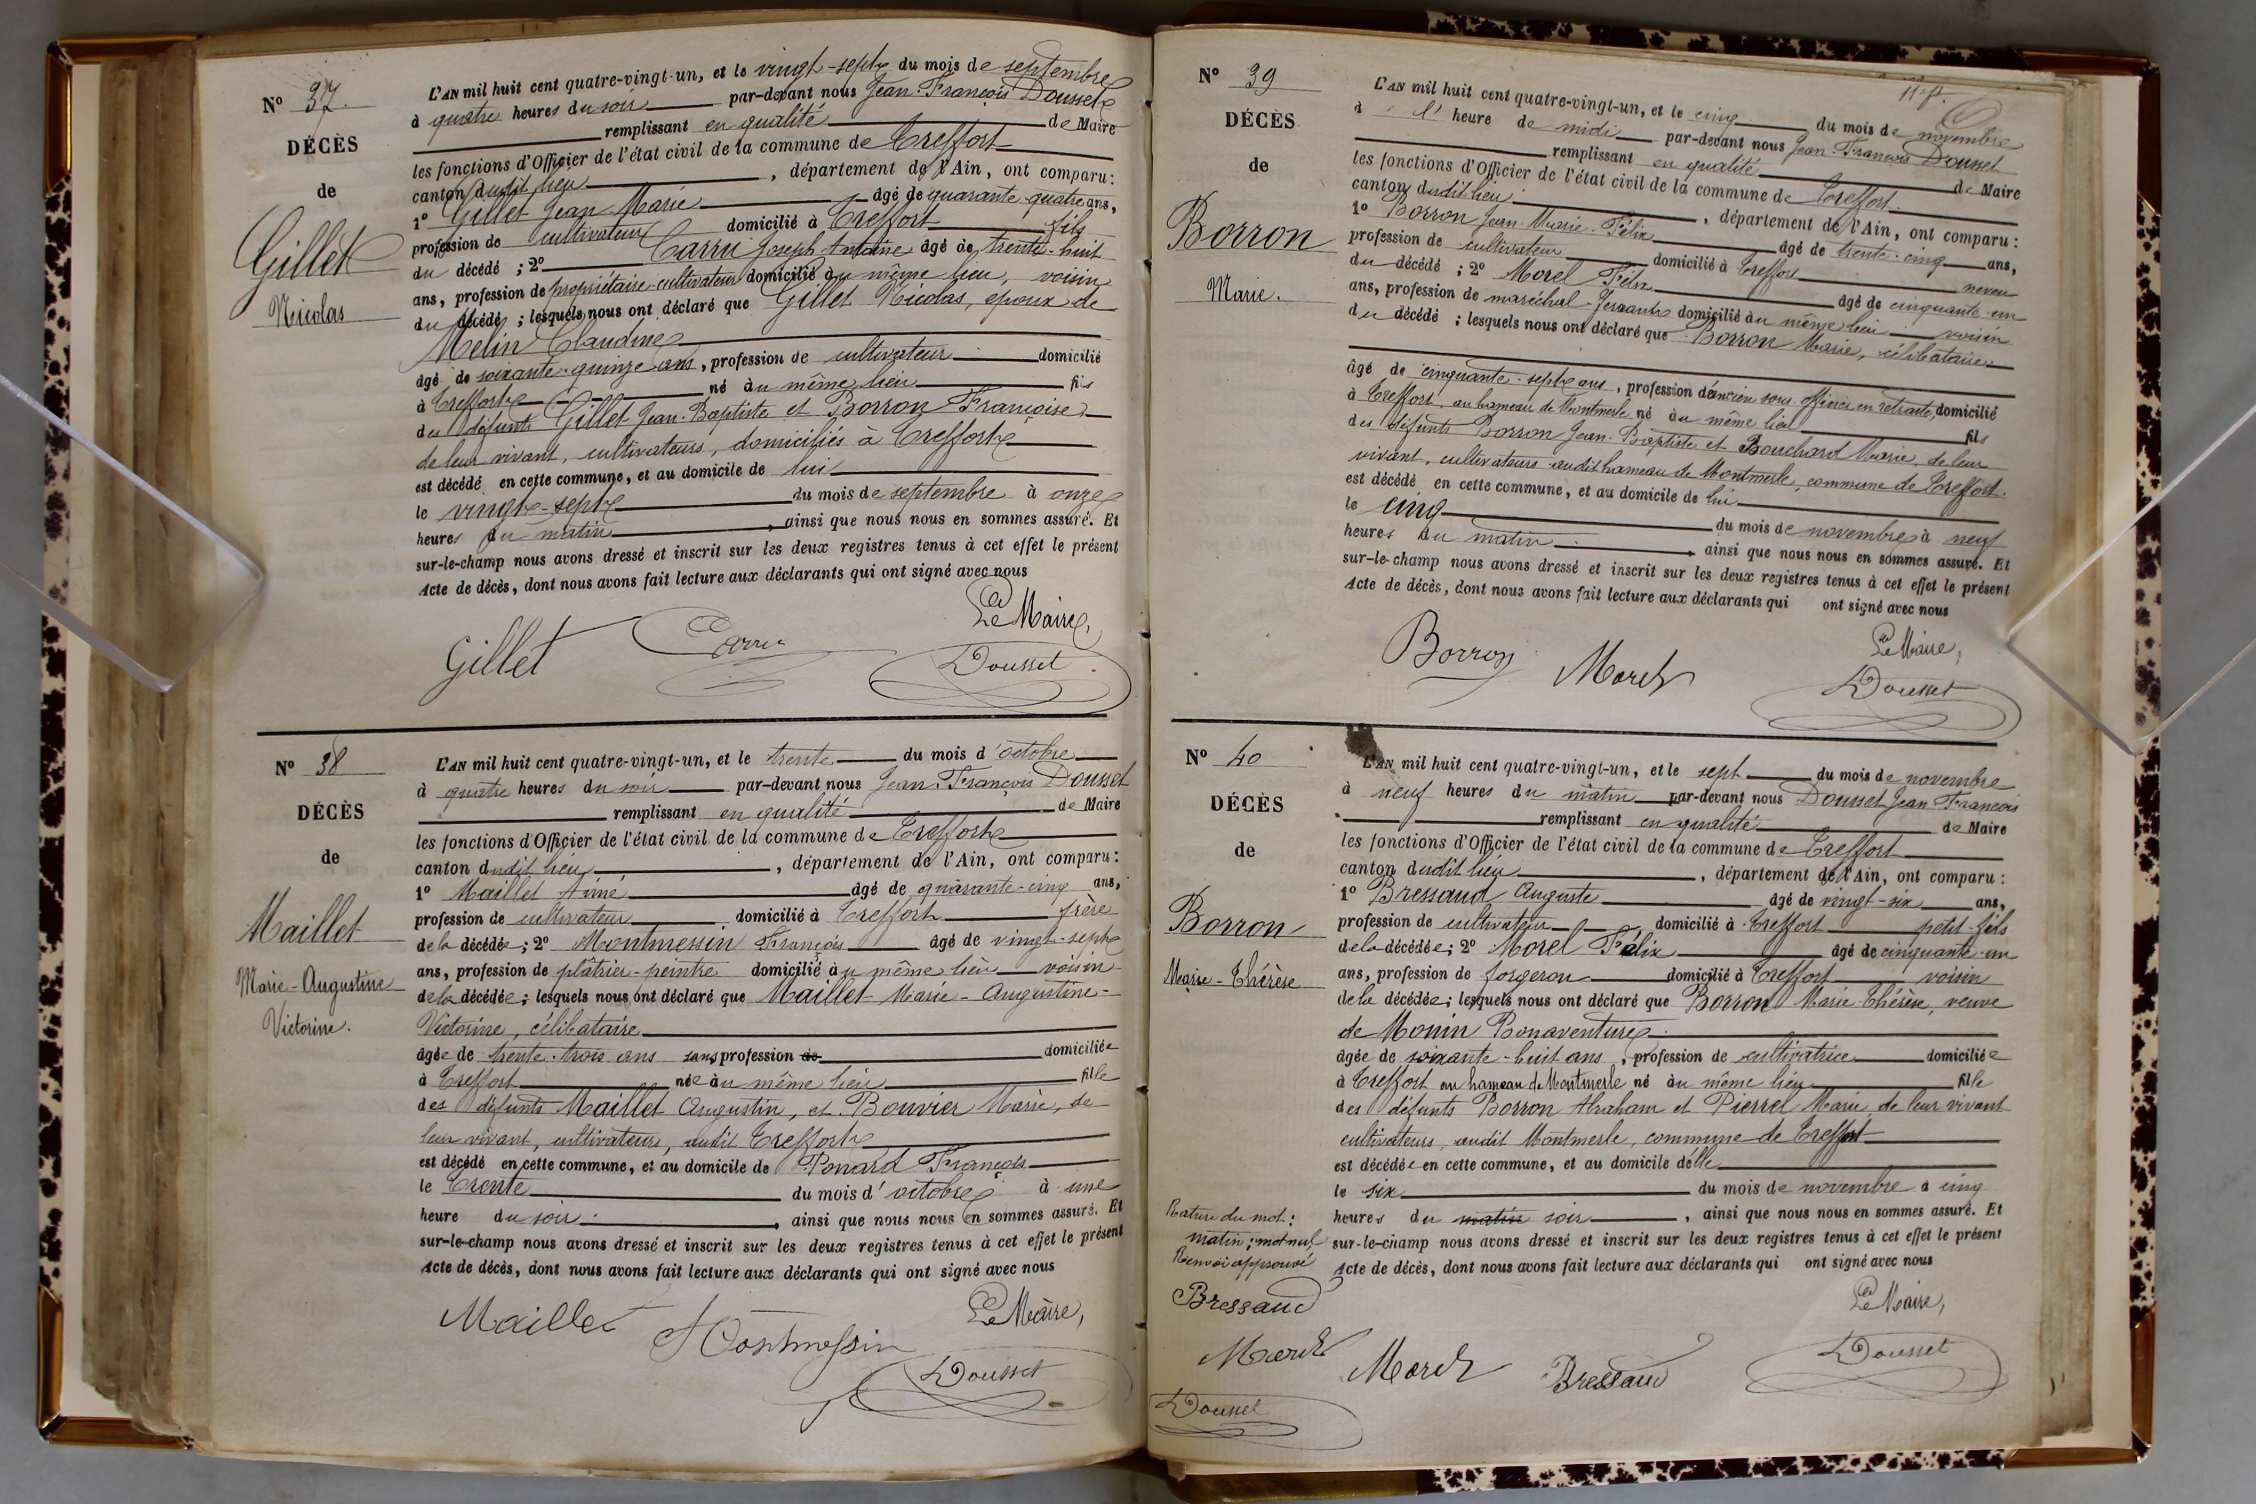 N° 37.
DÉCÈS
de
Gillet
Nicolas
L'AN mil huit cent quatre-vingt-un, et le vingt-sept du mois de septembre
à quatre heures du soir par-devant nous Jean-François Dousset
remplissant en qualité de Maire
les fonctions d'Officier de l'état civil de la commune de Treffort
canton dudit lieu, département de l'Ain, ont comparu:
1° Gillet Jean Marie âgé de quarante-quatre ans,
profession de cultivateur domicilié à Treffort fils
du décédé ; 2° Carru Joseph Antoine âgé de trente-huit
ans, profession de propriétaire-cultivateur domicilié au même lieu, voisin
du décédé ; lesquels nous ont déclaré que Gillet Nicolas, époux de
Melin Claudine
âgé de soixante-quinze ans, profession de cultivateur domicilié
à Treffort né au même lieu fils
des défunts Gillet Jean-Baptiste et Borron Françoise
de leur vivant, cultivateurs, domiciliés à Treffort
est décédé en cette commune, et au domicile de lui
le vingt-sept du mois de septembre à onze
heures du matin, ainsi que nous nous en sommes assuré. Et
sur-le-champ nous avons dressé et inscrit sur les deux registres tenus à cet effet le présent
Acte de décès, dont nous avons fait lecture aux déclarants qui ont signé avec nous
Le Maire,
Gillet Carru Dousset
N° 38
DÉCÈS
de
Maillet
Marie-Augustine
Victorine.
L'AN mil huit cent quatre-vingt-un, et le trente du mois d'octobre
à quatre heures du soir par-devant nous Jean-François Dousset
remplissant en qualité de Maire
les fonctions d'Officier de l'état civil de la commune de Treffort
canton dudit lieu, département de l'Ain, ont comparu:
1° Maillet Aimé âgé de quarante-cinq ans,
profession de cultivateur domicilié à Treffort frère
de la décédée ; 2° Montmessin François âgé de vingt-sept
ans, profession de plâtrier-peintre domicilié au même lieu voisin
de la décédée ; lesquels nous ont déclaré que Maillet Marie-Augustine-
Victorine, célibataire
âgée de trente-trois ans sans profession de domiciliée
à Treffort née au même lieu fille
des défunts Maillet Augustin, et Bouvier Marie, de
leur vivant, cultivateurs, audit Treffort
est décédé en cette commune, et au domicile de Ponard François
le trente du mois d'octobre à une
heure du soir, ainsi que nous nous en sommes assuré. Et
sur-le-champ nous avons dressé et inscrit sur les deux registres tenus à cet effet le présent
Acte de décès, dont nous avons fait lecture aux déclarants qui ont signé avec nous
Le Maire,
Maillet Montmessin
Dousset
N° 39
DÉCÈS
de
Borron
Marie.
L'AN mil huit cent quatre-vingt-un, et le cinq du mois de novembre
à l' heure de midi par-devant nous Jean-François Dousset
remplissant en qualité de Maire
les fonctions d'Officier de l'état civil de la commune de Treffort
canton dudit lieu, département de l'Ain, ont comparu :
1° Borron Jean-Marie-Félix âgé de trente-cinq ans,
profession de cultivateur domicilié à Treffort neveu
du décédé ; 2° Morel Félix âgé de cinquante-un
ans, profession de maréchal-ferrant domicilié au même lieu voisin
du décédé ; lesquels nous ont déclaré que Borron Marie, célibataire
âgé de cinquante-sept ans, profession d'ancien sous-officier en retraite, domicilié
à Treffort, au hameau de Montmerle né au même lieu fils
des défunts Borron Jean-Baptiste et Bouchard Marie, de leur
vivant, cultivateurs audit hameau de Montmerle, commune de Treffort.
est décédé en cette commune, et au domicile de lui
le cinq du mois de novembre à neuf
heures du matin, ainsi que nous nous en sommes assuré. Et
sur-le-champ nous avons dressé et inscrit sur les deux registres tenus à cet effet le présent
Acte de décès, dont nous avons fait lecture aux déclarants qui ont signé avec nous
Le Maire,
Borron Morel Dousset
N° 40
DÉCÈS
de
Borron
Marie-Thérèse
L'AN mil huit cent quatre-vingt-un, et le sept du mois de novembre
à neuf heures du matin par-devant nous Dousset Jean-François
remplissant en qualité de Maire
les fonctions d'Officier de l'état civil de la commune de Treffort
canton dudit lieu, département de l'Ain, ont comparu :
1° Bressaud Auguste âgé de vingt-six ans,
profession de cultivateur domicilié à Treffort petit-fils
de la décédée ; 2° Morel Félix âgé de cinquante-un
ans, profession de forgeron domicilié à Treffort voisin
de la décédée ; lesquels nous ont déclaré que Borron Marie-Thérèse, veuve
de Monin Bonaventure
âgée de soixante-huit ans, profession de cultivatrice domiciliée
à Treffort au hameau de Montmerle né au même lieu fille
des défunts Borron Abraham et Pierrel Marie, de leur vivant
cultivateurs, audit Montmerle, commune de Treffort
est décédée en cette commune, et au domicile d'elle
le six du mois de novembre à cinq
heures du matin soir, ainsi que nous nous en sommes assuré. Et
sur-le-champ nous avons dressé et inscrit sur les deux registres tenus à cet effet le présent
Acte de décès, dont nous avons fait lecture aux déclarants qui ont signé avec nous
Rature du mot:
matin; mot nul,
Renvoi approuvé
Bressaud
Morel
Dousset
Le Maire,
Morel Bressaud Dousset